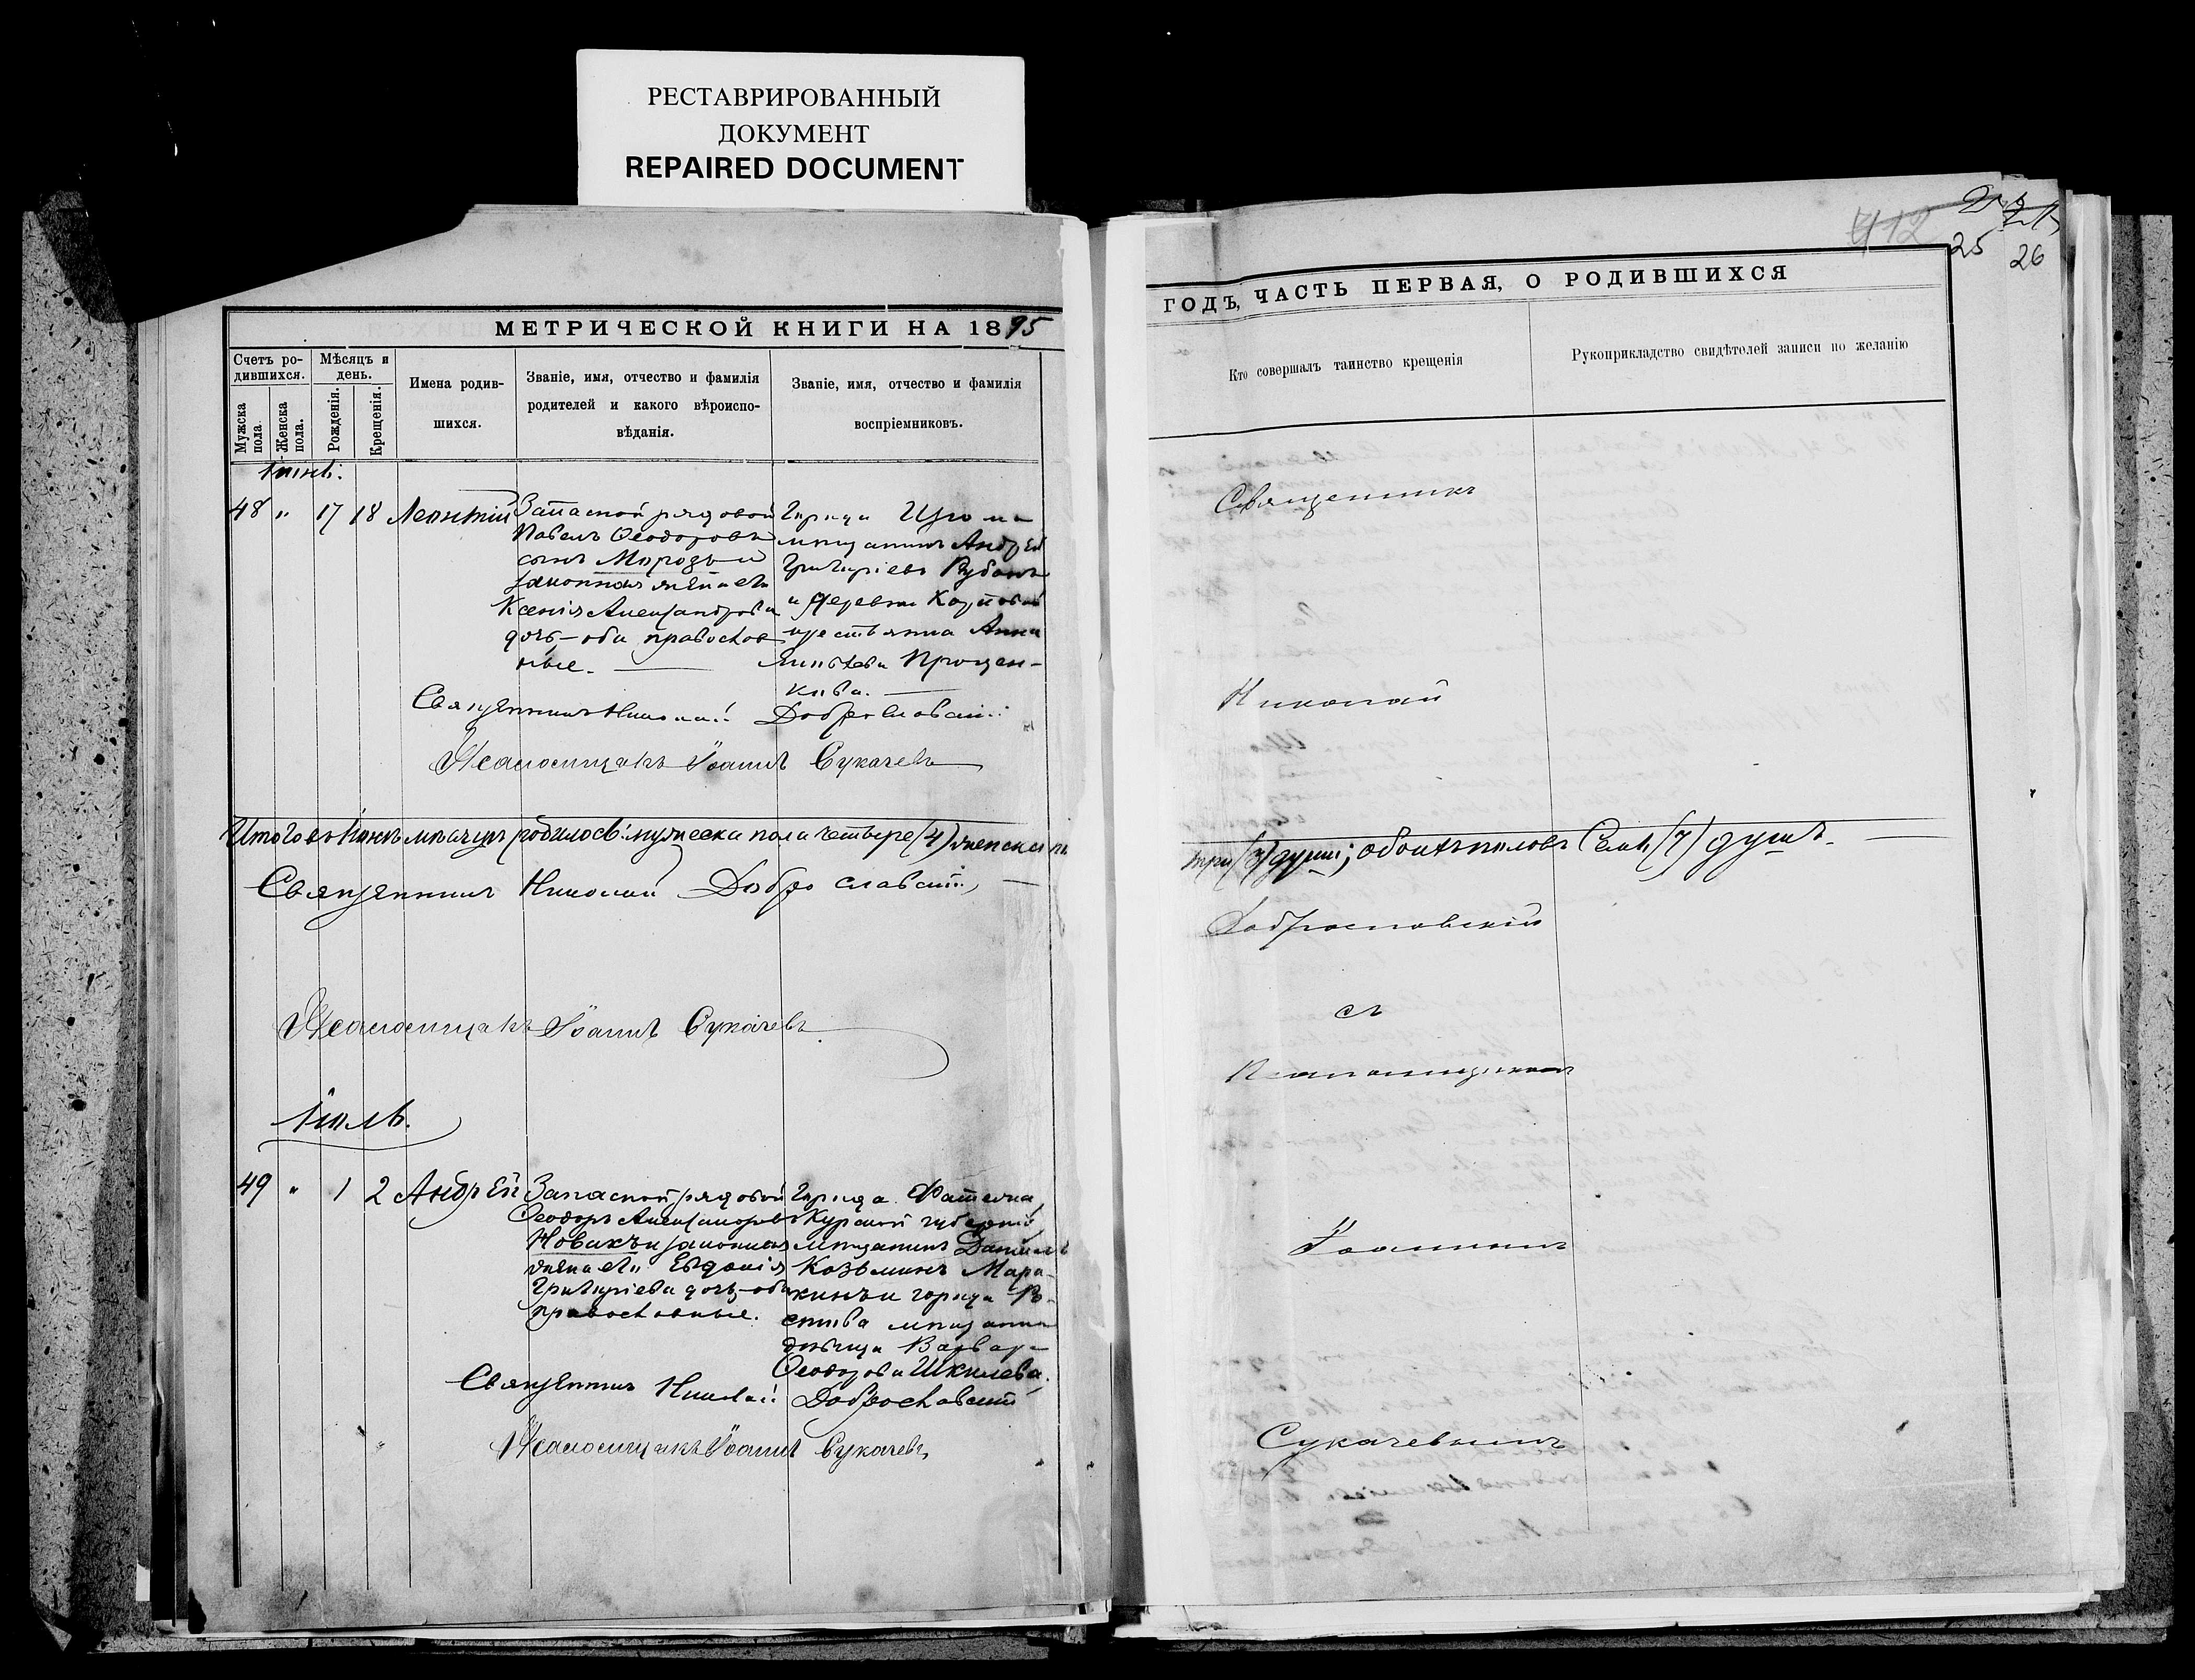 РЕСТАВРИРОВАННЫЙ
ДОКУМЕНТ
REPAIRED DOCUMENT
412
25
26
МЕТРИЧЕСКОЙ КНИГИ НА 1895
Счетъ ро-
дившихся.
Мужска пола.
Женска пола.
Мѣсяцъ и
день.
Рожденія.
Крещенія.
Имена родив-
шихся.
Званіе, имя, отчество и фамилія
родителей и какого вѣроиспо-
вѣданія.
Званіе, имя, отчество и фамилія
воспріемниковъ.
Іюнь.
48 " 17 18 Леонтій
Запасной рядовой
Павелъ Ѳеодоровъ
сынъ Морозъ и
законная жена его
Ксенія Александрова
дочь – оба православ
ные.
Города
мѣщанинъ Андрей
Григоріевъ
и деревни
крестьянка Анна
Процен-
кова.
Священникъ Николай Доброславскій
Псаломщикъ Іоаннъ Сукачевъ
Итого въ Іюнѣ мѣсяцѣ родилось: мужеска пола четыре (4) женска
Священникъ Николай Доброславскій
Псаломщикъ Іоаннъ Сукачевъ
Іюль.
49 " 1 2 Андрей
Запасной рядовой
Ѳеодоръ Александровъ
Новакъ и законная
жена его Евдокія
Григоріева дочь – оба
православные.
Города Фатежа,
Курской губерніи,
мѣщанинъ Даніилъ
Козьминъ Мара-
кинъ и города Ро-
стова мѣщанка
дѣвица Варвара
Ѳеодорова Шкилева.
Священникъ Николай Доброславскій
Псаломщикъ Іоаннъ Сукачевъ
ГОДЪ, ЧАСТЬ ПЕРВАЯ, О РОДИВШИХСЯ
Кто совершалъ таинство крещенія
Рукоприкладство свидѣтелей записи по желанію
Священникъ
Николай
три (3) души; обоихъ половъ Семь (7) душъ.
Доброславскій
съ
Псаломщикомъ
Іоанномъ
Сукачевымъ